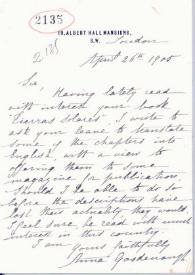 2135
19, ALBERT HALL MANSIONS,
S.W.
London
April 26th 1905
Sir,
Having lately read
with interest your book
"Tierras Solares". I write to
ask your leave to translate
some of the chapters into
English, with a view to
offering them to some
magazine for publication.
Should I be able to do so
before the descriptions have
lost their actuality they would,
I feel sure, be read with much
interest in this country.
I am
Yours faithfully
Anna